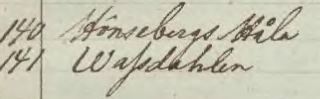 140 Hönsebergs Håla
141 Wassdahlen